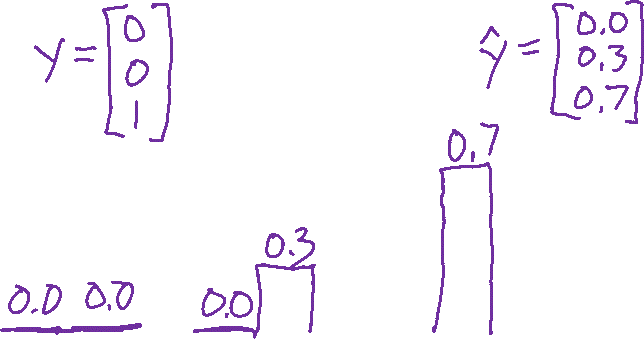 Y = [0 0 1]
ŷ = [0.0 0.3 0.7]
0.7
0.3
0.0 0.0 0.0